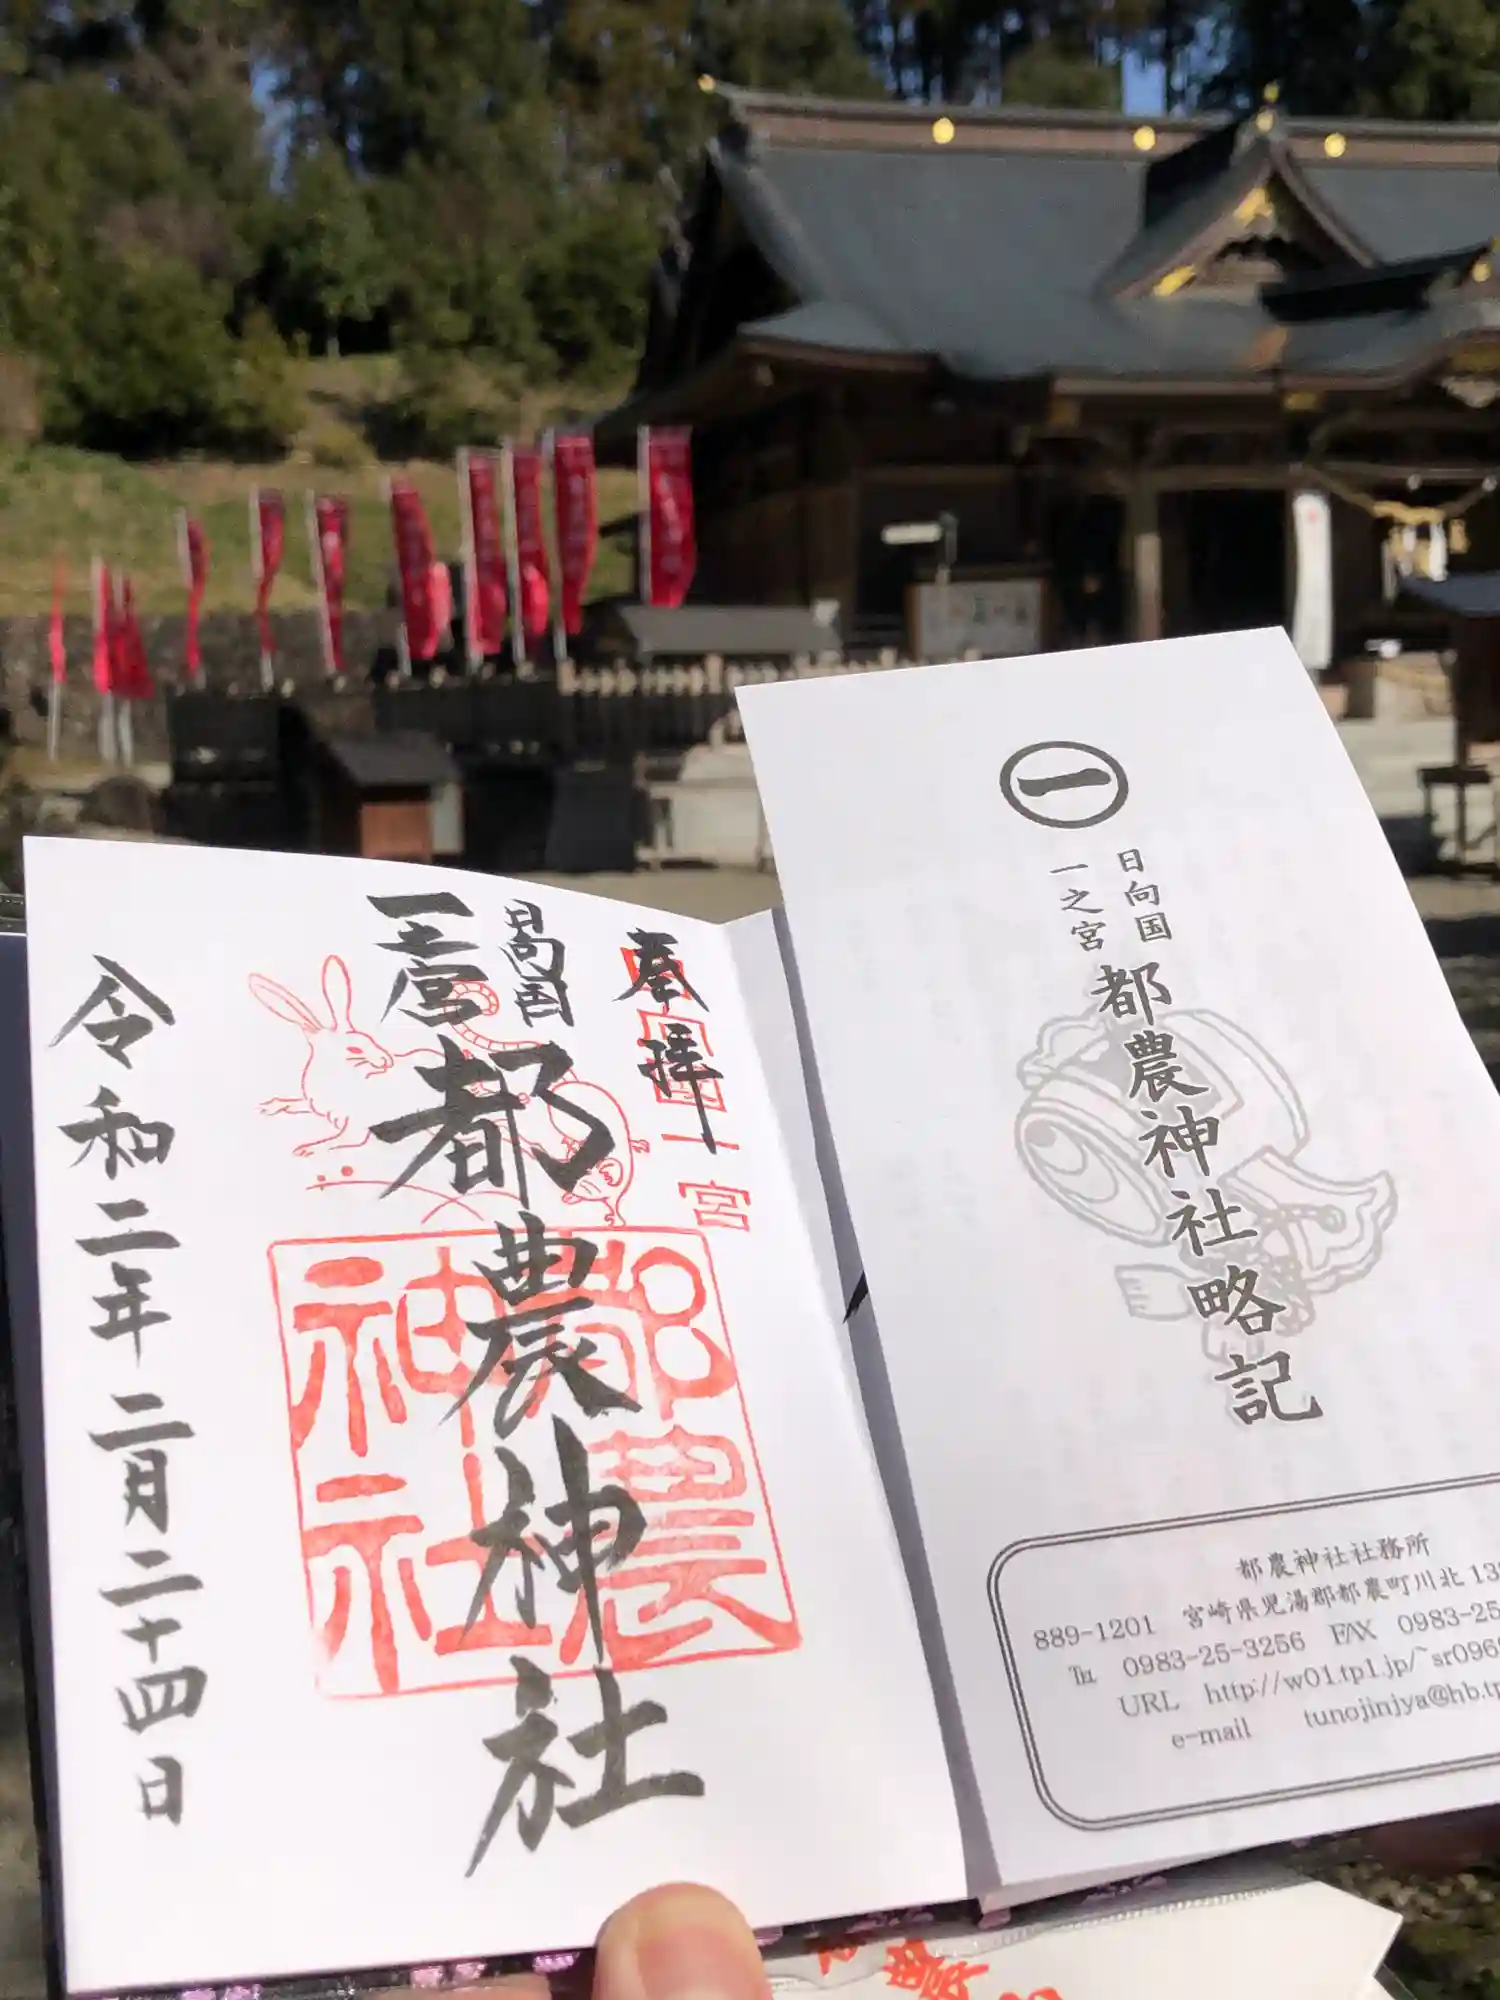 奉拝
日向国
一之宮
都農神社
令和二年二月二十四日
日向国一宮
都農神社
㊀
日向国
一之宮
都農神社略記
都農神社社務所
889-1201 宮崎県児湯郡都農町川北13
℡ 0983-25-3256 FAX 0983-25
URL http://w01.tp1.jp/~sr096
e-mail tunojinjya@hb.tp